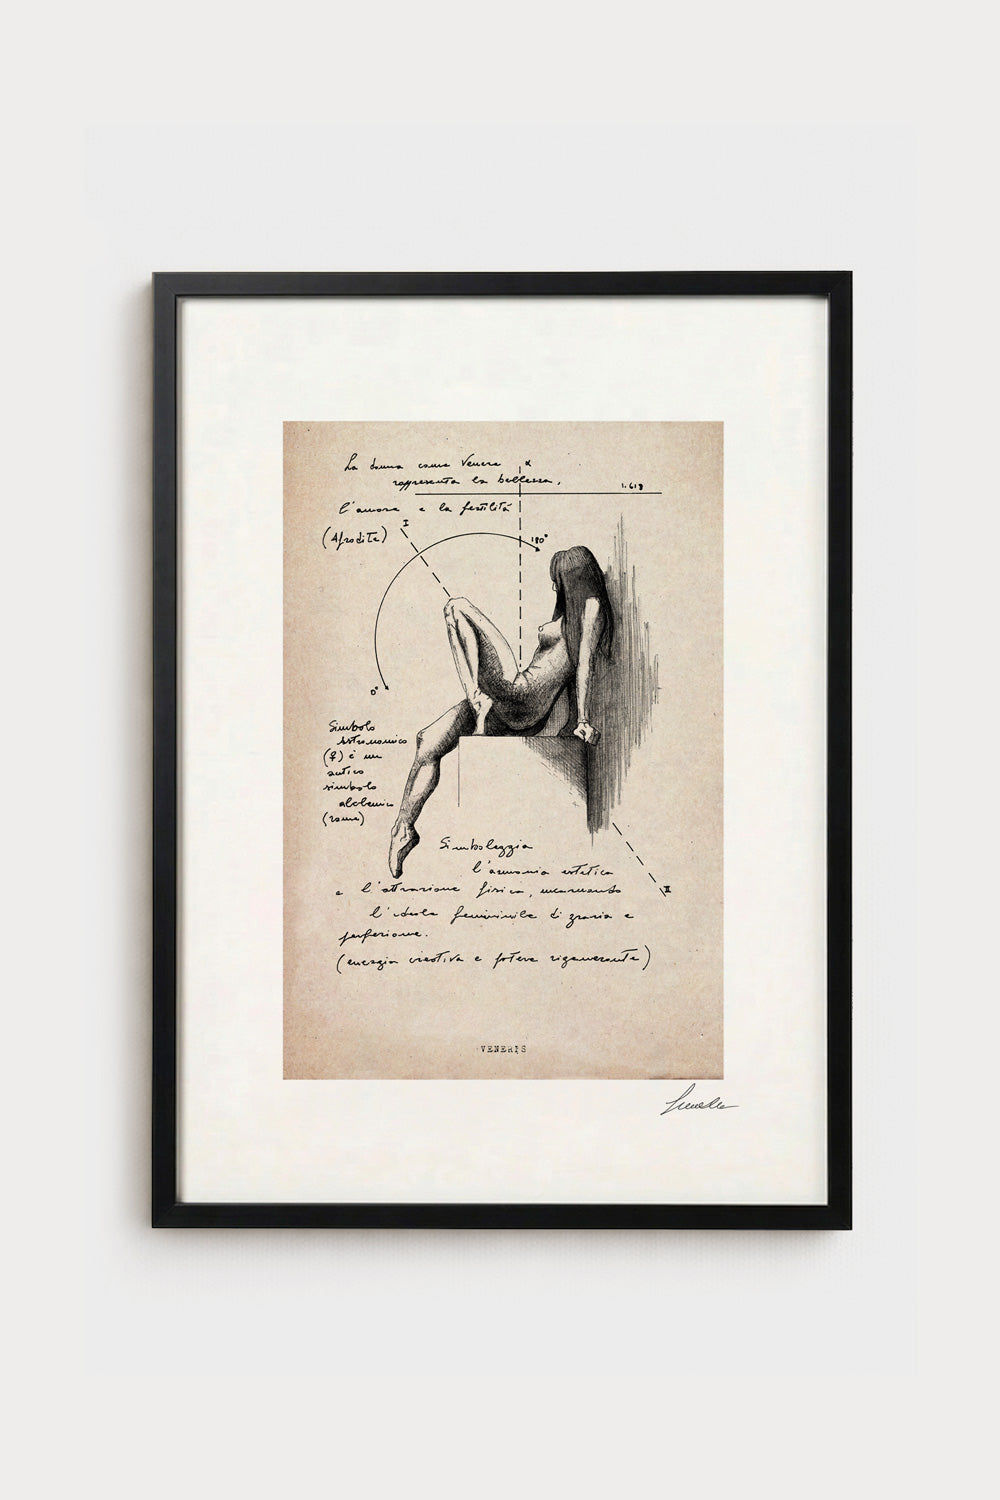 La donna come Venere
rappresenta la bellezza,
l'amore e la fertilità
(Afrodite)
α
1.618
I
180°
0°
Simbolo
astronomico
(♀) è un
antico
simbolo
alchemico
(rame)
Simboleggia
l'armonia estetica
e l'attrazione fisica, incarnando
l'ideale femminile di grazia e
perfezione.
(energia creativa e potere rigenerante)
II
VENERIS